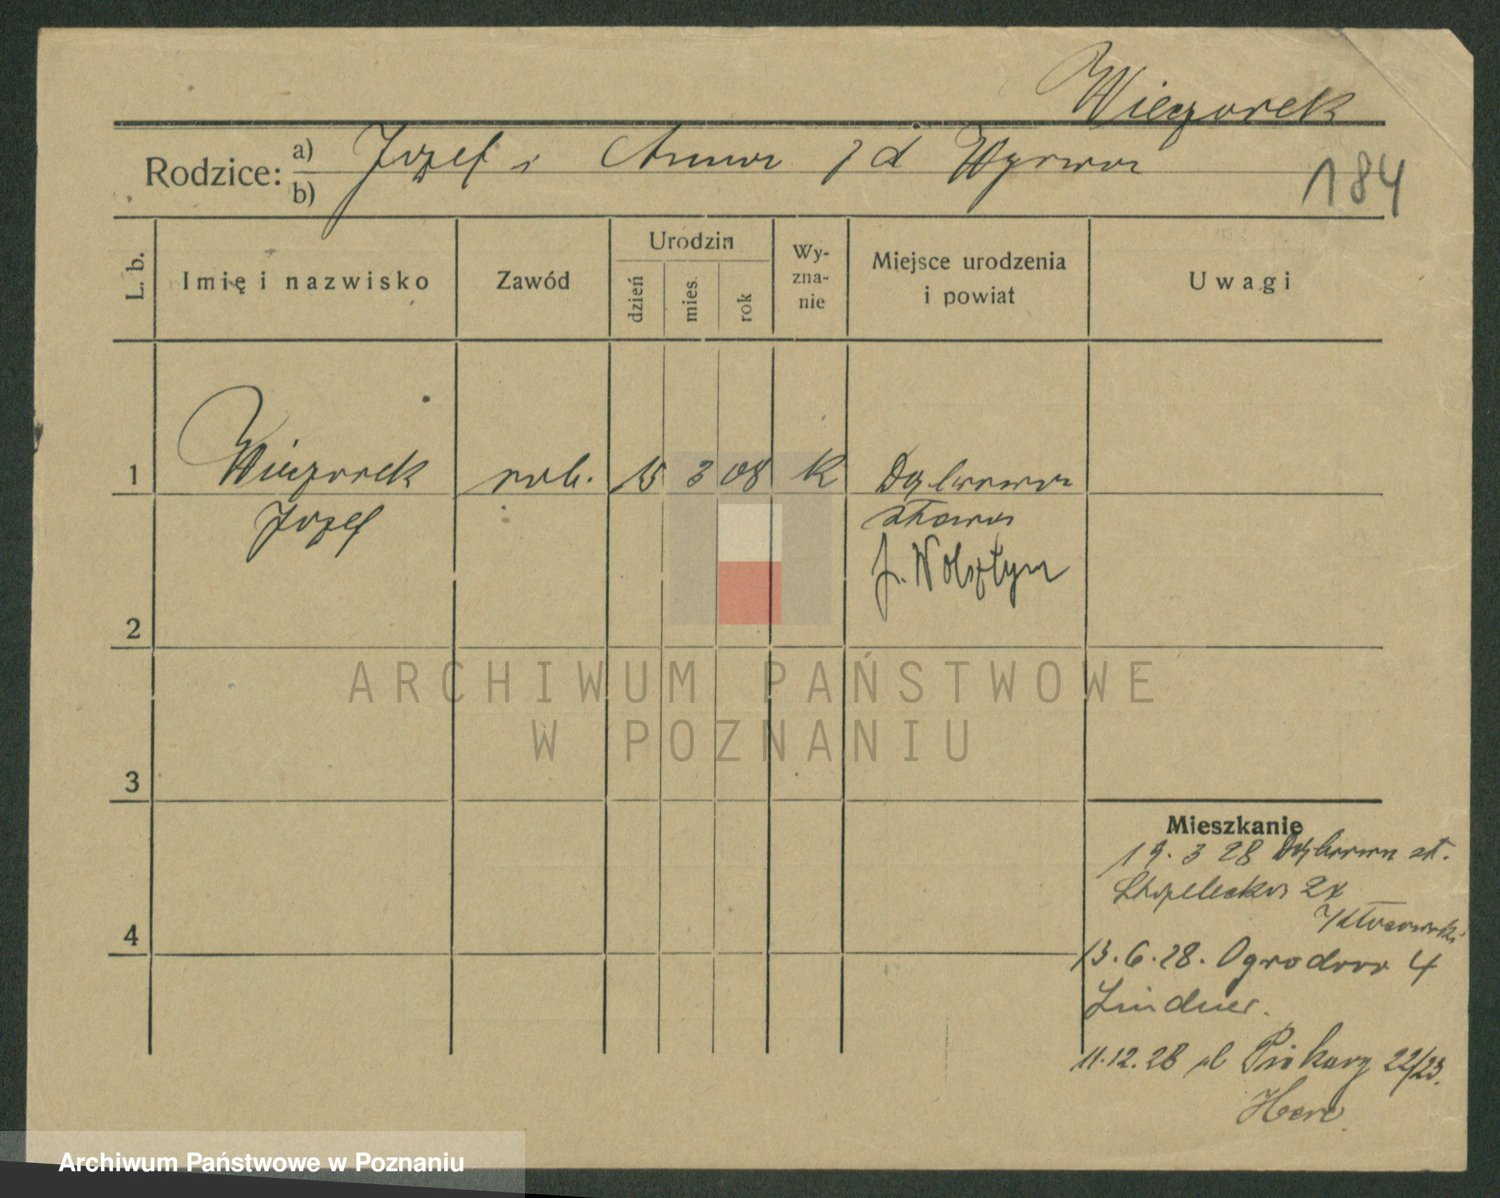 Wieczorek
Rodzice: a) Józef i Anna z d
b)
184
L. b.
Imię i nazwisko
Zawód
Urodzin
dzień
mies.
rok
Wy-
zna-
nie
Miejsce urodzenia
i powiat
Uwagi
1
Wieczorek
rob.
15
3
08
K
Dąbrowa
Józef
stara
p. Wolsztyn
2
ARCHIWUM PAŃSTWOWE
W POZNANIU
3
Mieszkanie
19. 3 28 Dąbrowa st.
Strzelecka
4
13.6.28. Ogrodowa 4
Lindner.
11.12.28 Piekary 22/23.
Archiwum Państwowe w Poznaniu